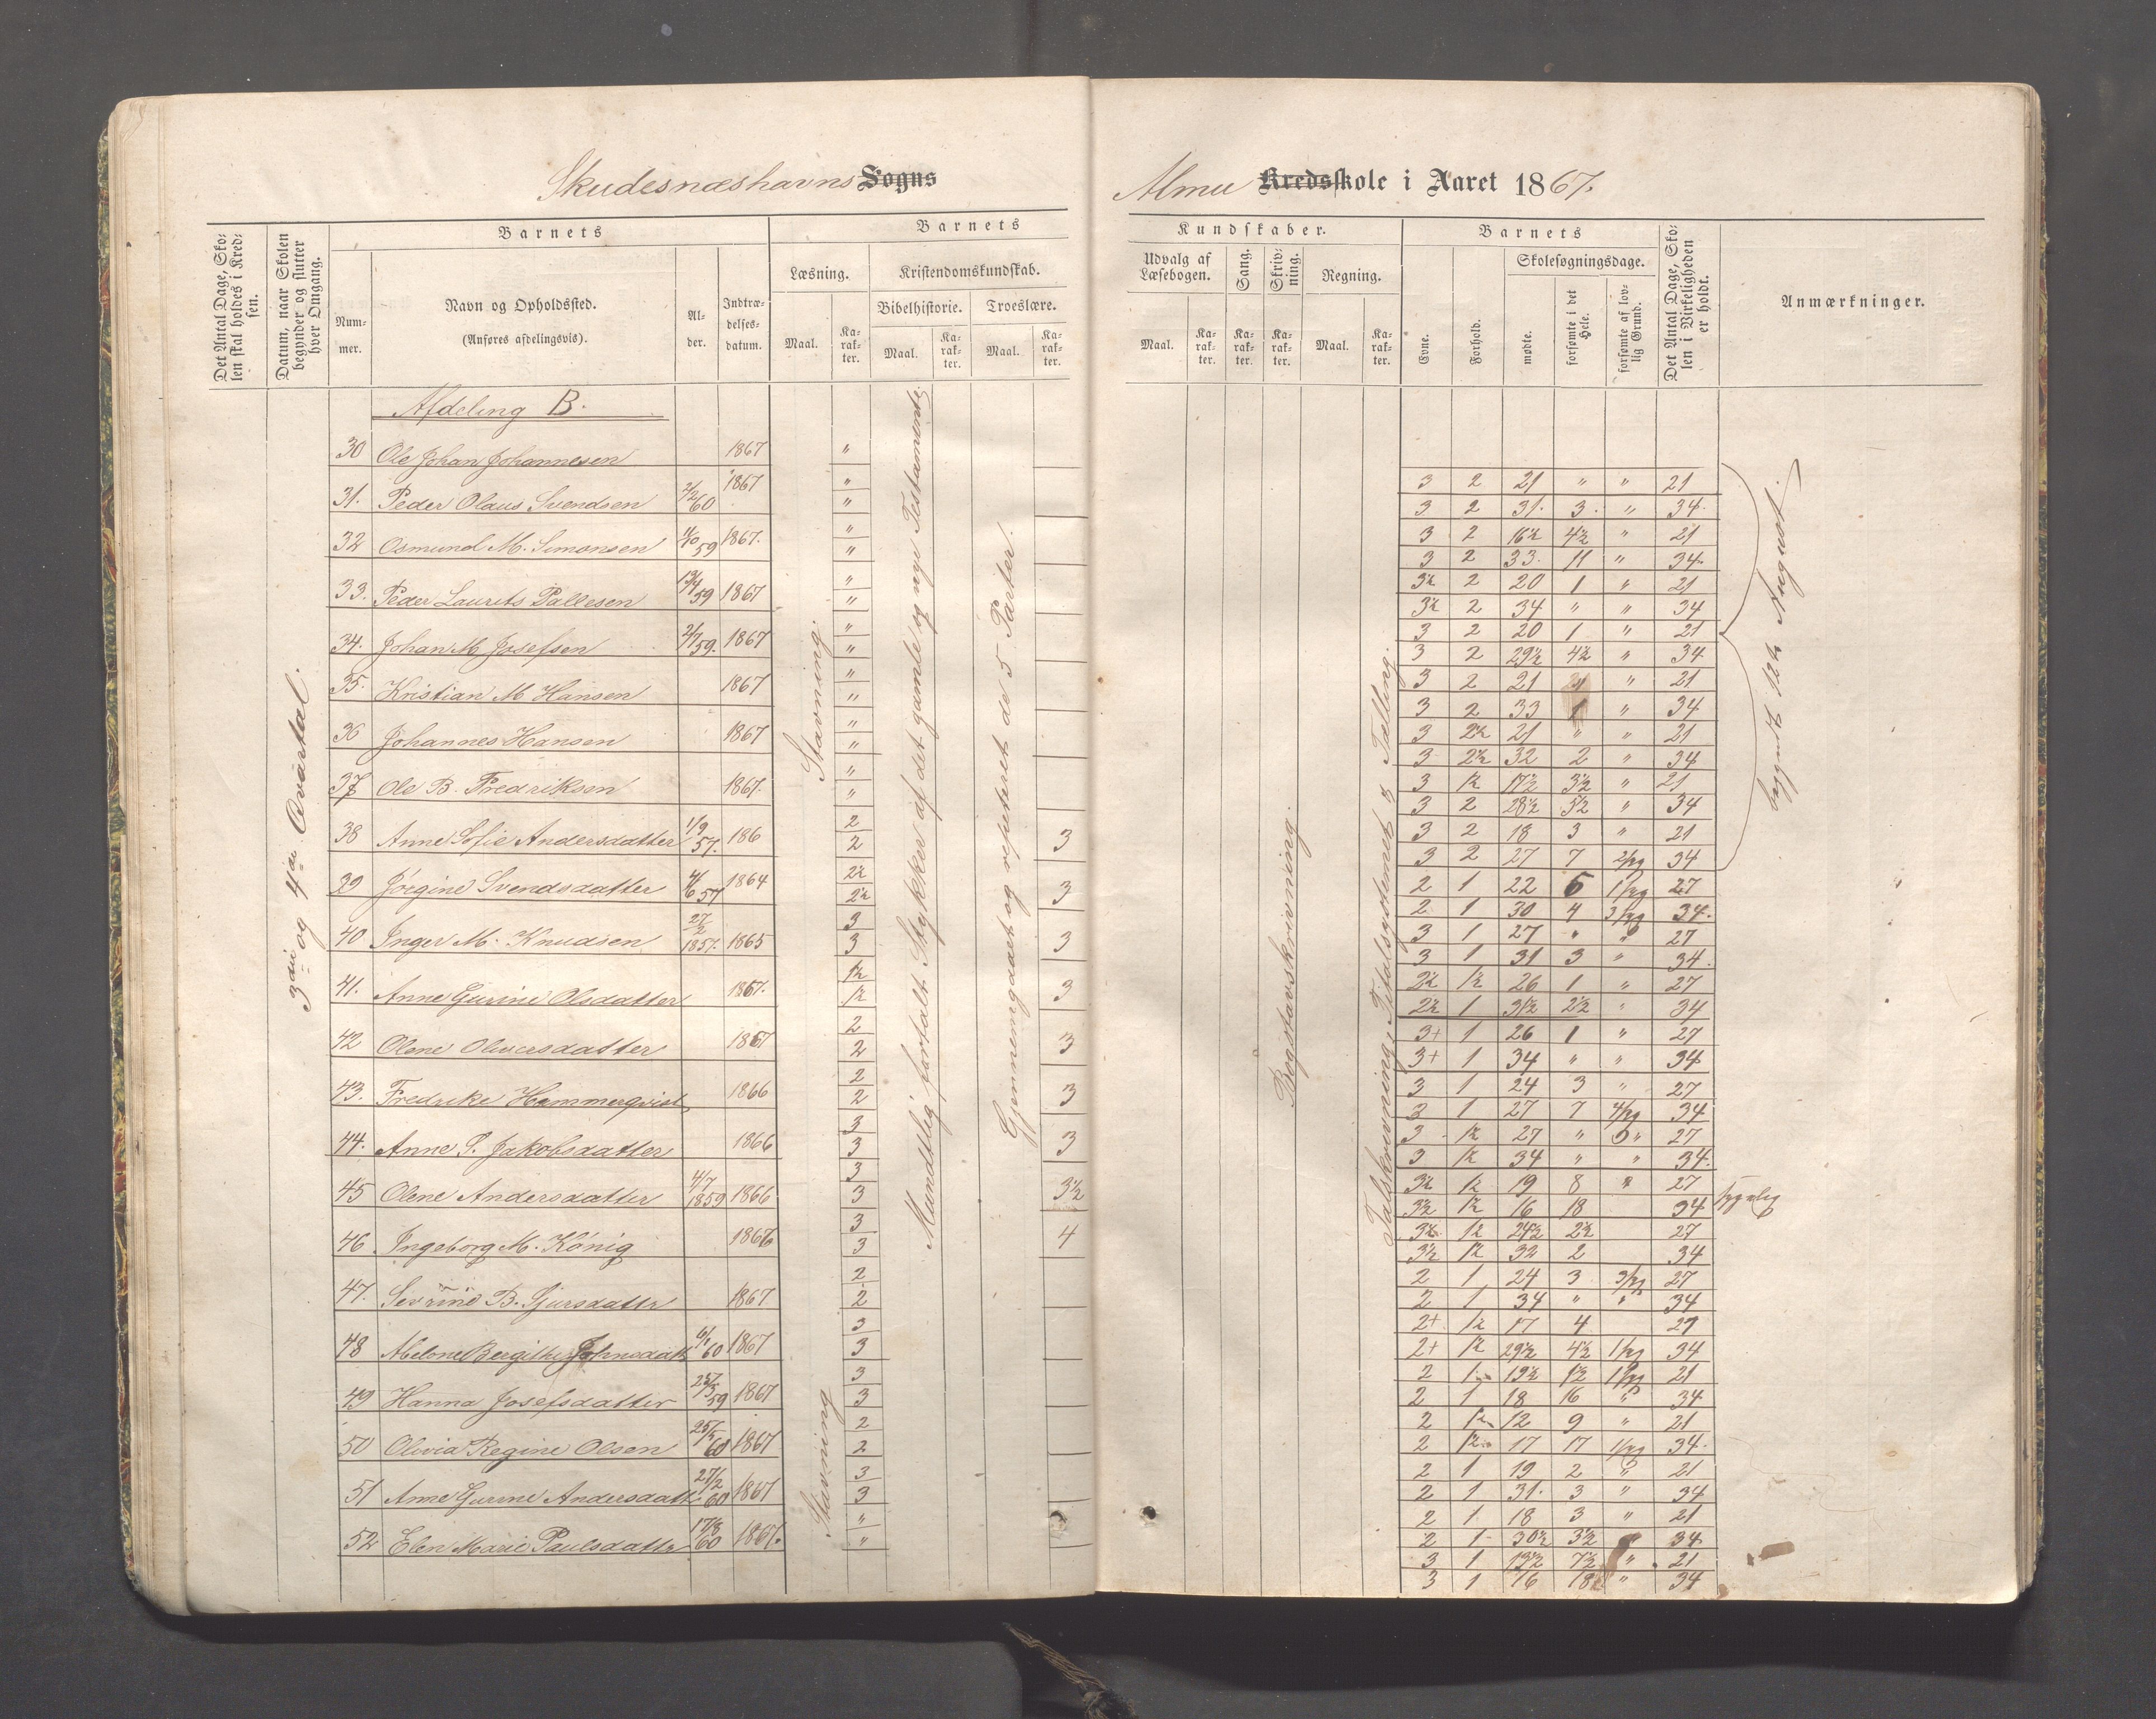 Skudesnæshavns Sogns
Almue Kredsskole i Aaret 1867.
Det Antal Dage, Skolen skal holdes i Kredsen.
Datum, naar Skolen begynder og slutter hver Omgang.
Barnets
Num-
mer.
Navn og Opholdssted.
(Anføres afdelingsvis).
Al-
der.
Indtræ-
delses-
datum.
Barnets
Læsning.
Maal.
Ka-
rak-
ter.
Kristendomskundskab.
Bibelhistorie.
Maal.
Ka-
rak-
ter.
Troeslære.
Maal.
Ka-
rak-
ter.
Kundskaber.
Udvalg af
Læsebogen.
Maal.
Ka-
rak-
ter.
Sang.
Ka-
rak-
ter.
Skriv-
ning.
Ka-
rak-
ter.
Regning.
Maal.
Ka-
rak-
ter.
Barnets
Evne.
Forhold.
Skolesøgningsdage.
mødte.
forsømte i det
Hele.
forsømte af lov-
lig Grund.
Det Antal Dage, Sko-
len i Virkeligheden
er holdt.
Anmærkninger.
3die og 4de Qvartal.
Afdeling B.
30 Ole Johan Johannesen 1867 " "
31. Peder Olaus Svendsen 2/2 60 1867 " "
32 Osmund M. Simonsen 4/10 59 1867. " "
33. Peder Laurits Pallesen 19/4 59 1867 " "
34. Johan M Josefsen 2/7 59. 1867 " "
35. Kristian M Hansen 1867 " "
36 Johannes Hansen 1867 " "
37 Ole B. Fredriksen 1867. " "
38 Anne Sofie Andersdatter 1/9 57. 186 2 2 3
39 Jørgine Svendsdatter 4/6 57 1864 2½ 2½ 3
40 Inger M. Knudsen 27/2 1857. 1865 3 3 3
41. Anne Gurine Olsdatter 1867. 1½ 1½ 3
42 Olene Oliversdatter 1867 2 2 3
43. Fredrike Hammerqvist 1866 2 2 3
44. Anne P. Jakobsdatter 1866 3 3 3
45 Olene Andersdatter 4/7 1859 1866 3 3 3½
46 Ingeborg M. König 1866 3 3 4
47. Sevrine B. Gjersdattr 1867 2 2
48 Abelone Bergithe Johnsdatt 6/1 60 1867 3 3
49 Hanna Josefsdatter 25/5 59 1867 3 3
50 Olivia Regine Olsen 25/5 60 1867 2 2
51 Anne Gurine Andersdatt 27/2 60 1867 3 3
52 Elen Marie Paulsdattr 17/8 60 1867. " "
Stavning.
Stavning
Mundtlig fortalt Stykker af det gamle og nye Testamente.
Gjennemgaaet og repeteret de 5 Parter.
Bogstavskrivning.
Talskrivning, Titalsystemet & Tælling.
3 2 21 " " 21
3 2 31. 3. " 34.
3 2 16½ 4½ " 21
3 2 33. 11 " 34.
3½ 2 20 1 " 21
3½ 2 34 " " 34
3 2 20 1 " 21
3 2 29½ 4½ " 34
3 2 21 " " 21
3 2 33 1 " 34
3 2½ 21 " " 21
3 2½ 32 2 " 34
3 1½ 17½ 3½ " 21
3 2 28½ 5½ " 34
3 2 18 3 " 21
3 2 27 7 2/sg 34
2 1 22 5 1/sg 27
2 1 30 4 3/sg 34.
3 1 27 " " 27
3 1 31 3 " 34.
2½ 1½ 26 1 " 27
2½ 1 31½ 2½ " 34
3+ 1 26 1 " 27
3+ 1 34 " " 34
3 1 24 3 " 27
3 1 27 7 4/sg 34
3 1½ 27 " " 27
3 1½ 34 " " 34.
3½ 1½ 19 8 " 27
3½ 1½ 16 18 34 sygelig
3½ 1½ 24½ 2½ 27
3½ 1½ 32 2 34
2 1 24 3 3/sg 27
2 1 34 " " 34
2+ 1½ 17 4 27
2+ 1½ 29½ 4½ 1/sg 34
2 1 19½ 1½ 1/sg 21
2 1 18 16 " 34
2 1½ 12 9 " 21
2 1½ 17 17 1/sg 34.
2 1 19 2 " 21
2 1 31. 3 " 34
2 1 18 3 " 21
2 1 30½ 3½ " 34
3 1 13½ 7½ " 21
3 1 16 18 " 34
begyndt 12te August.